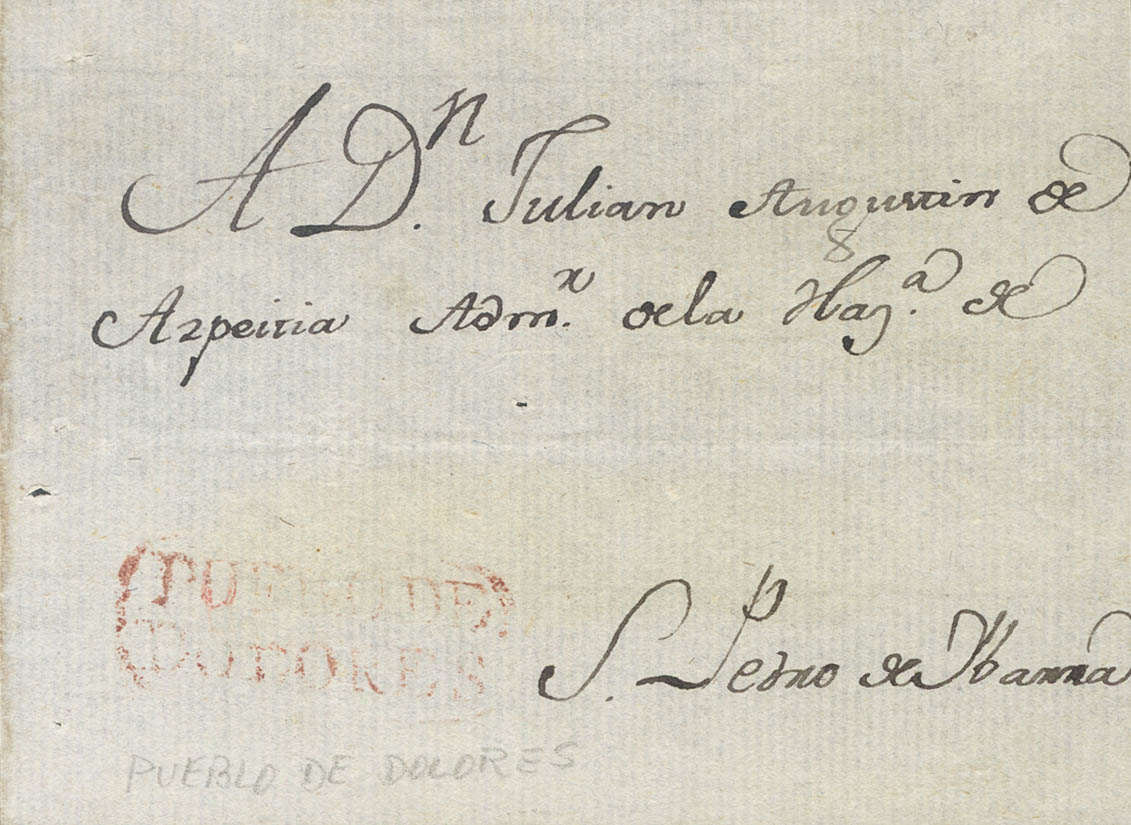 A Dn. Julian Augustin de
Azpeitia Admr. dela Haza. de
PUEBLO DE
DOLORES
S. Pedro de Ybarra
PUEBLO DE DOLORES